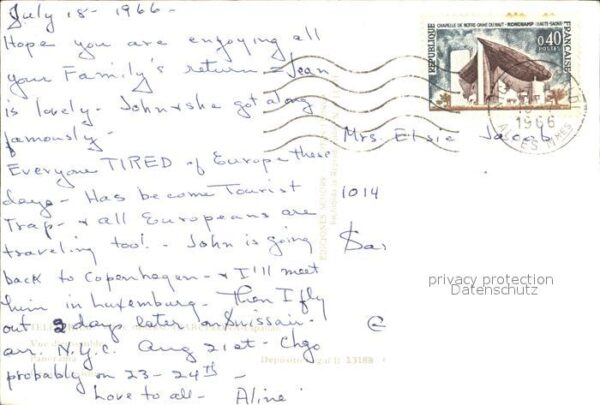 July 18 - 1966 -
Hope you are enjoying all
your Family's return - Jean
is lovely - John & she got along
famously -
Everyone TIRED of Europe these
days - Has become Tourist
Trap - & all Europeans are
traveling too! - John is going
back to Copenhagen - & I'll meet
him in Luxemburg - Then I fly
out 2 days later on Swissair -
arr. N.Y.C. Aug 21st - Chgo
probably on 23 - 24th -
Love to all - Aline
Mrs. Elsie Jacob
1014
CHAPELLE DE NOTRE-DAME DU HAUT - RONCHAMP (HAUTE-SAÔNE)
REPUBLIQUE
FRANÇAISE
0,40
POSTES
1966
privacy protection
Datenschutz